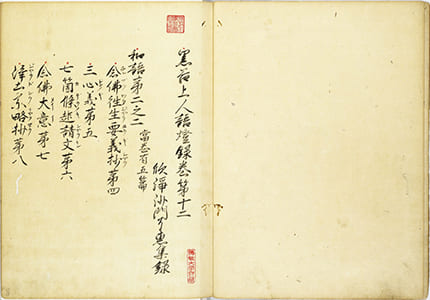 黒谷上人語燈録巻第十二
欣淨沙門了恵集録
和語第二之二 當巻有五篇
念佛往生要義抄第四
三心義第五
七箇條起請文第六
念佛大意第七
淨土宗略抄第八